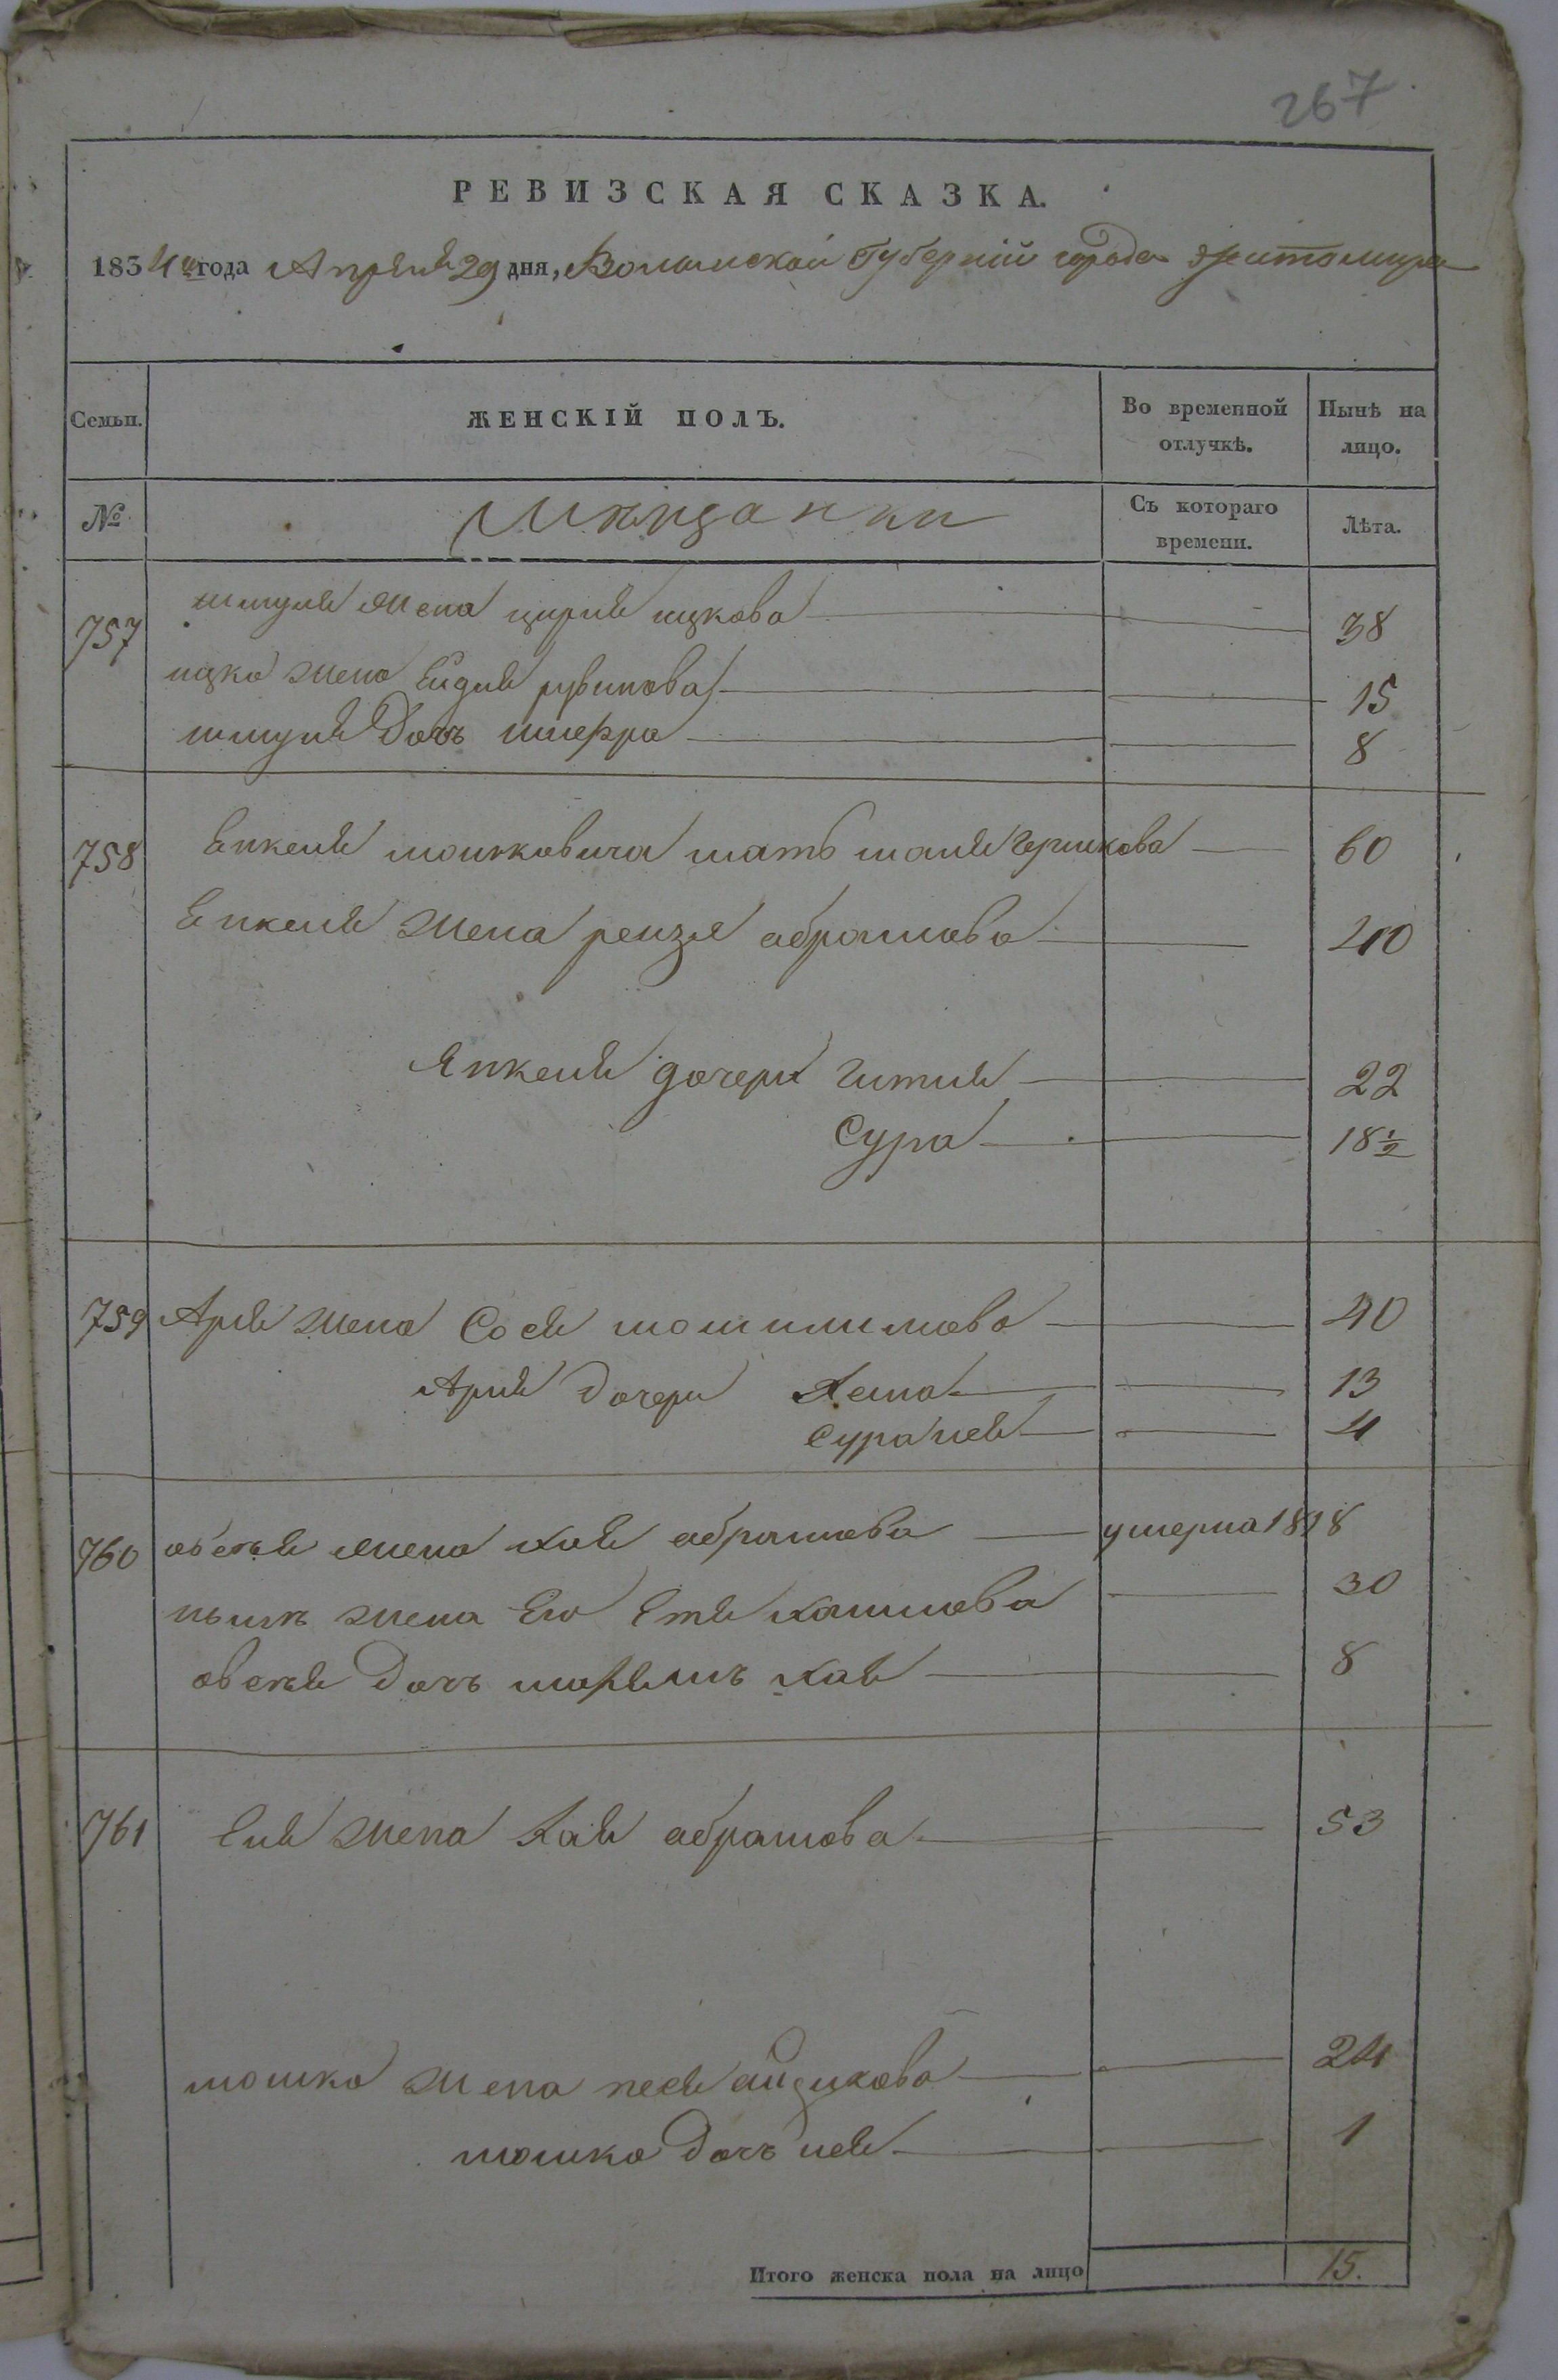 267
РЕВИЗСКАЯ СКАЗКА.
1834го года Апреля 29 дня, Волынской Губерній города Житомира
Семьи. ЖЕНСКІЙ ПОЛЪ. Во временной отлучкѣ. Нынѣ на лицо.
№ Мещанки Съ котораго времени. Лѣта.
757 шмуля жена цирля ицкова 38
ицка жена Ейдля рувинова 15
шмуля Дочь шифра 8
758 Енкеля мошковича мать маля гершкова 60
Енкеля жена рейзя абрамова 40
Янкеля дочери гитля 22
Сура 18 1/2
759 Ария жена Сося
Ария дочери Хана 13
Сура 4
760 жена хая абрамова умерла 1818
жена Его Етя хаимова 30
Дочь хая 8
761 Еля жена Хая абрамова 53
мошка жена песя 24
мошка Дочь 1
Итого женска пола на лицо 15.